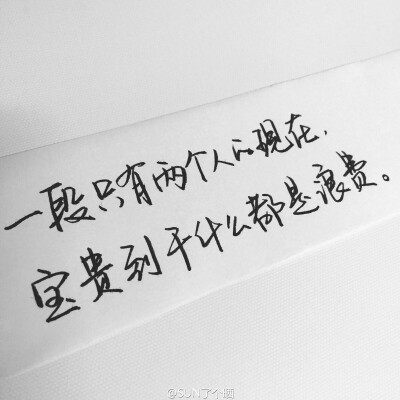 一段只有两个人的现在，
宝贵到干什么都是浪费。
@SUN了个喵